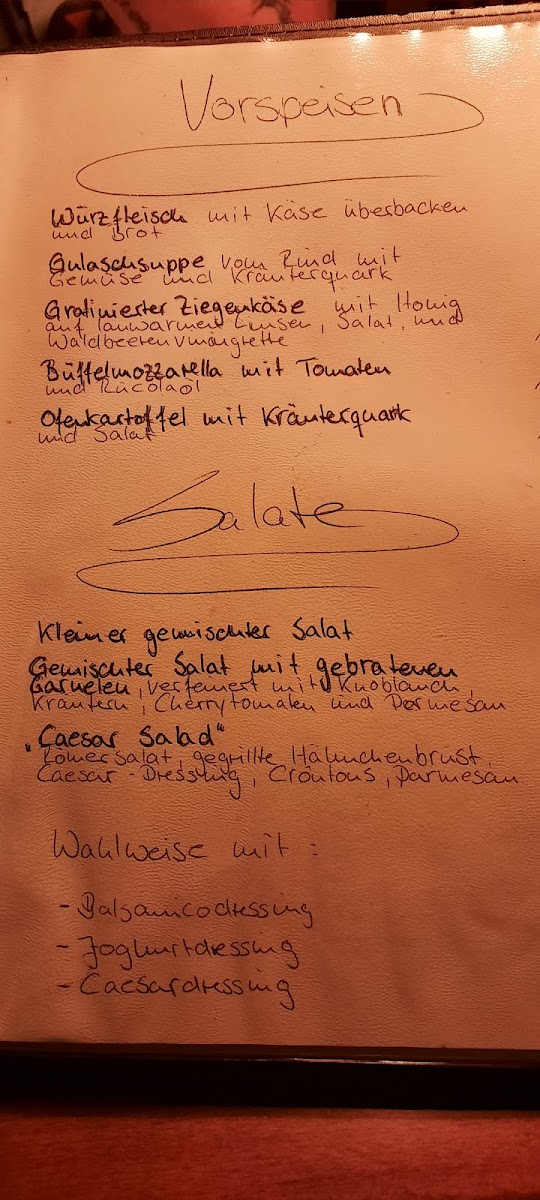 Vorspeisen
Würzfleisch mit Käse überbacken
und Brot
Gulaschsuppe vom Rind mit
Gemüse und Kräuterquark
Gratinierter Ziegenkäse mit Honig
auf lauwarmen Linsen, Salat, und
Waldbeerenvinaigrette
Büffelmozzarella mit Tomaten
und Rucolaöl
Ofenkartoffel mit Kräuterquark
und Salat
Salate
Kleiner gemischter Salat
Gemischter Salat mit gebratenen
Garnelen, verfeinert mit Knoblauch,
Kräutern, Cherrytomaten und Parmesan
„Caesar Salad"
Römersalat, gegrillte Hähnchenbrust,
Caesar-Dressing, Croûtons, Parmesan
Wahlweise mit:
- Balsamicodressing
- Joghurtdressing
- Caesardressing